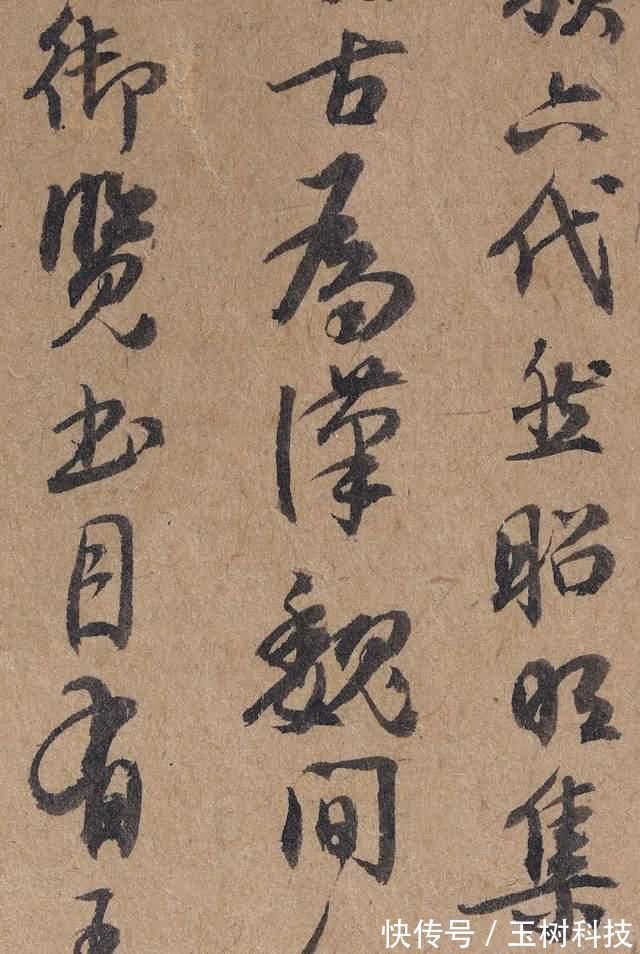 六代然昭集
古為漢魏間
御覽書目有
快传号 / 玉树科技